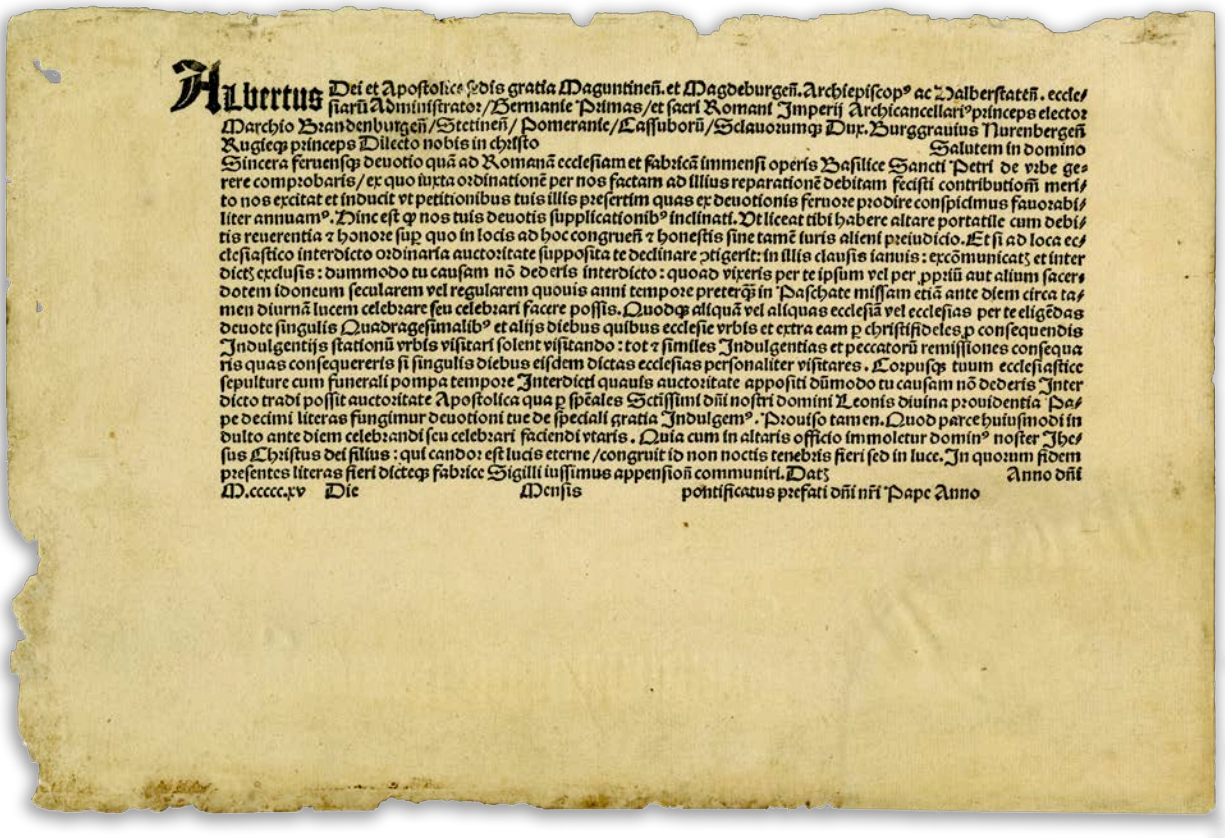 Albertus Dei et Apostolice sedis gratia Maguntineñ. et Magdeburgeñ. Archiepiscopꝰ ac Halberstateñ. eccle⸗
siarū Administrator/Germanie Primas/et sacri Romani Imperij Archicancellariꝰ princeps elector
Marchio Brandenburgeñ/Stetineñ/ Pomeranie/Cassuborū/Sclauorumqꝫ Dux. Burggrauius Nurenbergeñ
Rugieqꝫ princeps Dilecto nobis in christo Salutem in domino
Sincera feruensqꝫ deuotio quā ad Romanā ecclesiam et fabricā immensi operis Basilice Sancti Petri de vrbe ge⸗
rere comprobaris/ex quo iuxta ordinationē per nos factam ad illius reparationē debitam fecisti contributioñ meri⸗
to nos excitat et inducit vt petitionibus tuis illis presertim quas ex deuotionis feruore prodire conspicimus fauorabi⸗
liter annuamꝰ. Hinc est ꝙ nos tuis deuotis supplicationibꝰ inclinati. Vt liceat tibi habere altare portatile cum debi⸗
tis reuerentia ⁊ honore suꝑ quo in locis ad hoc congrueñ ⁊ honestis sine tamē iuris alieni preiudicio. Et si ad loca ec⸗
clesiastico interdicto ordinaria auctoritate supposita te declinare ꝯtigerit: in illis clausis ianuis: excōmunicatꝫ et inter
dictꝫ exclusis: dummodo tu causam nō dederis interdicto: quoad vixeris per te ipsum vel per ꝓpriū aut alium sacer⸗
dotem idoneum secularem vel regularem quouis anni tempore preterqꝫ in Paschate missam etiā ante diem circa ta⸗
men diurnā lucem celebrare seu celebrari facere possis. Quodqꝫ aliquā vel aliquas ecclesiā vel ecclesias per te eligēdas
deuote singulis Quadragesimalibꝰ et alijs diebus quibus ecclesie vrbis et extra eam ꝑ christifideles ꝓ consequendis
Indulgentijs stationū vrbis visitari solent visitando: tot ⁊ similes Indulgentias et peccatorū remissiones consequa
ris quas consequereris si singulis diebus eisdem dictas ecclesias personaliter visitares. Corpusqꝫ tuum ecclesiastice
sepulture cum funerali pompa tempore Interdicti quauis auctoritate appositi dūmodo tu causam nō dederis Inter
dicto tradi possit auctoritate Apostolica qua ꝑ spēales Sctīssimi dñi nostri domini Leonis diuina prouidentia Pa⸗
pe decimi literas fungimur deuotioni tue de speciali gratia Indulgemꝰ. Prouiso tamen. Quod parce huiusmodi in
dulto ante diem celebrandi seu celebrari faciendi vtaris. Quia cum in altaris officio immoletur dominꝰ noster Jhe⸗
sus Christus dei filius: qui candor est lucis eterne/congruit id non noctis tenebris fieri sed in luce. In quorum fidem
presentes literas fieri dicteqꝫ fabrice Sigilli iussimus appensioñ communiri. Datꝫ Anno dñi
M.ccccc.xv Die Mensis pontificatus prefati dñi nři Pape Anno